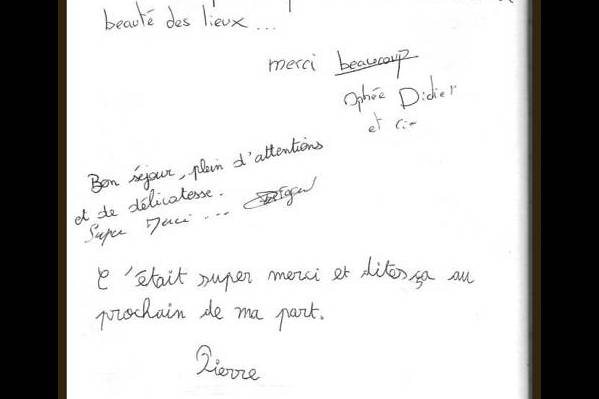 beauté des lieux...
merci beaucoup
Ophée Didier
et Cie
Bon séjour, plein d'attentions
et de délicatesse.
Super Merci...
C'était super merci et dites ça au
prochain de ma part.
Pierre